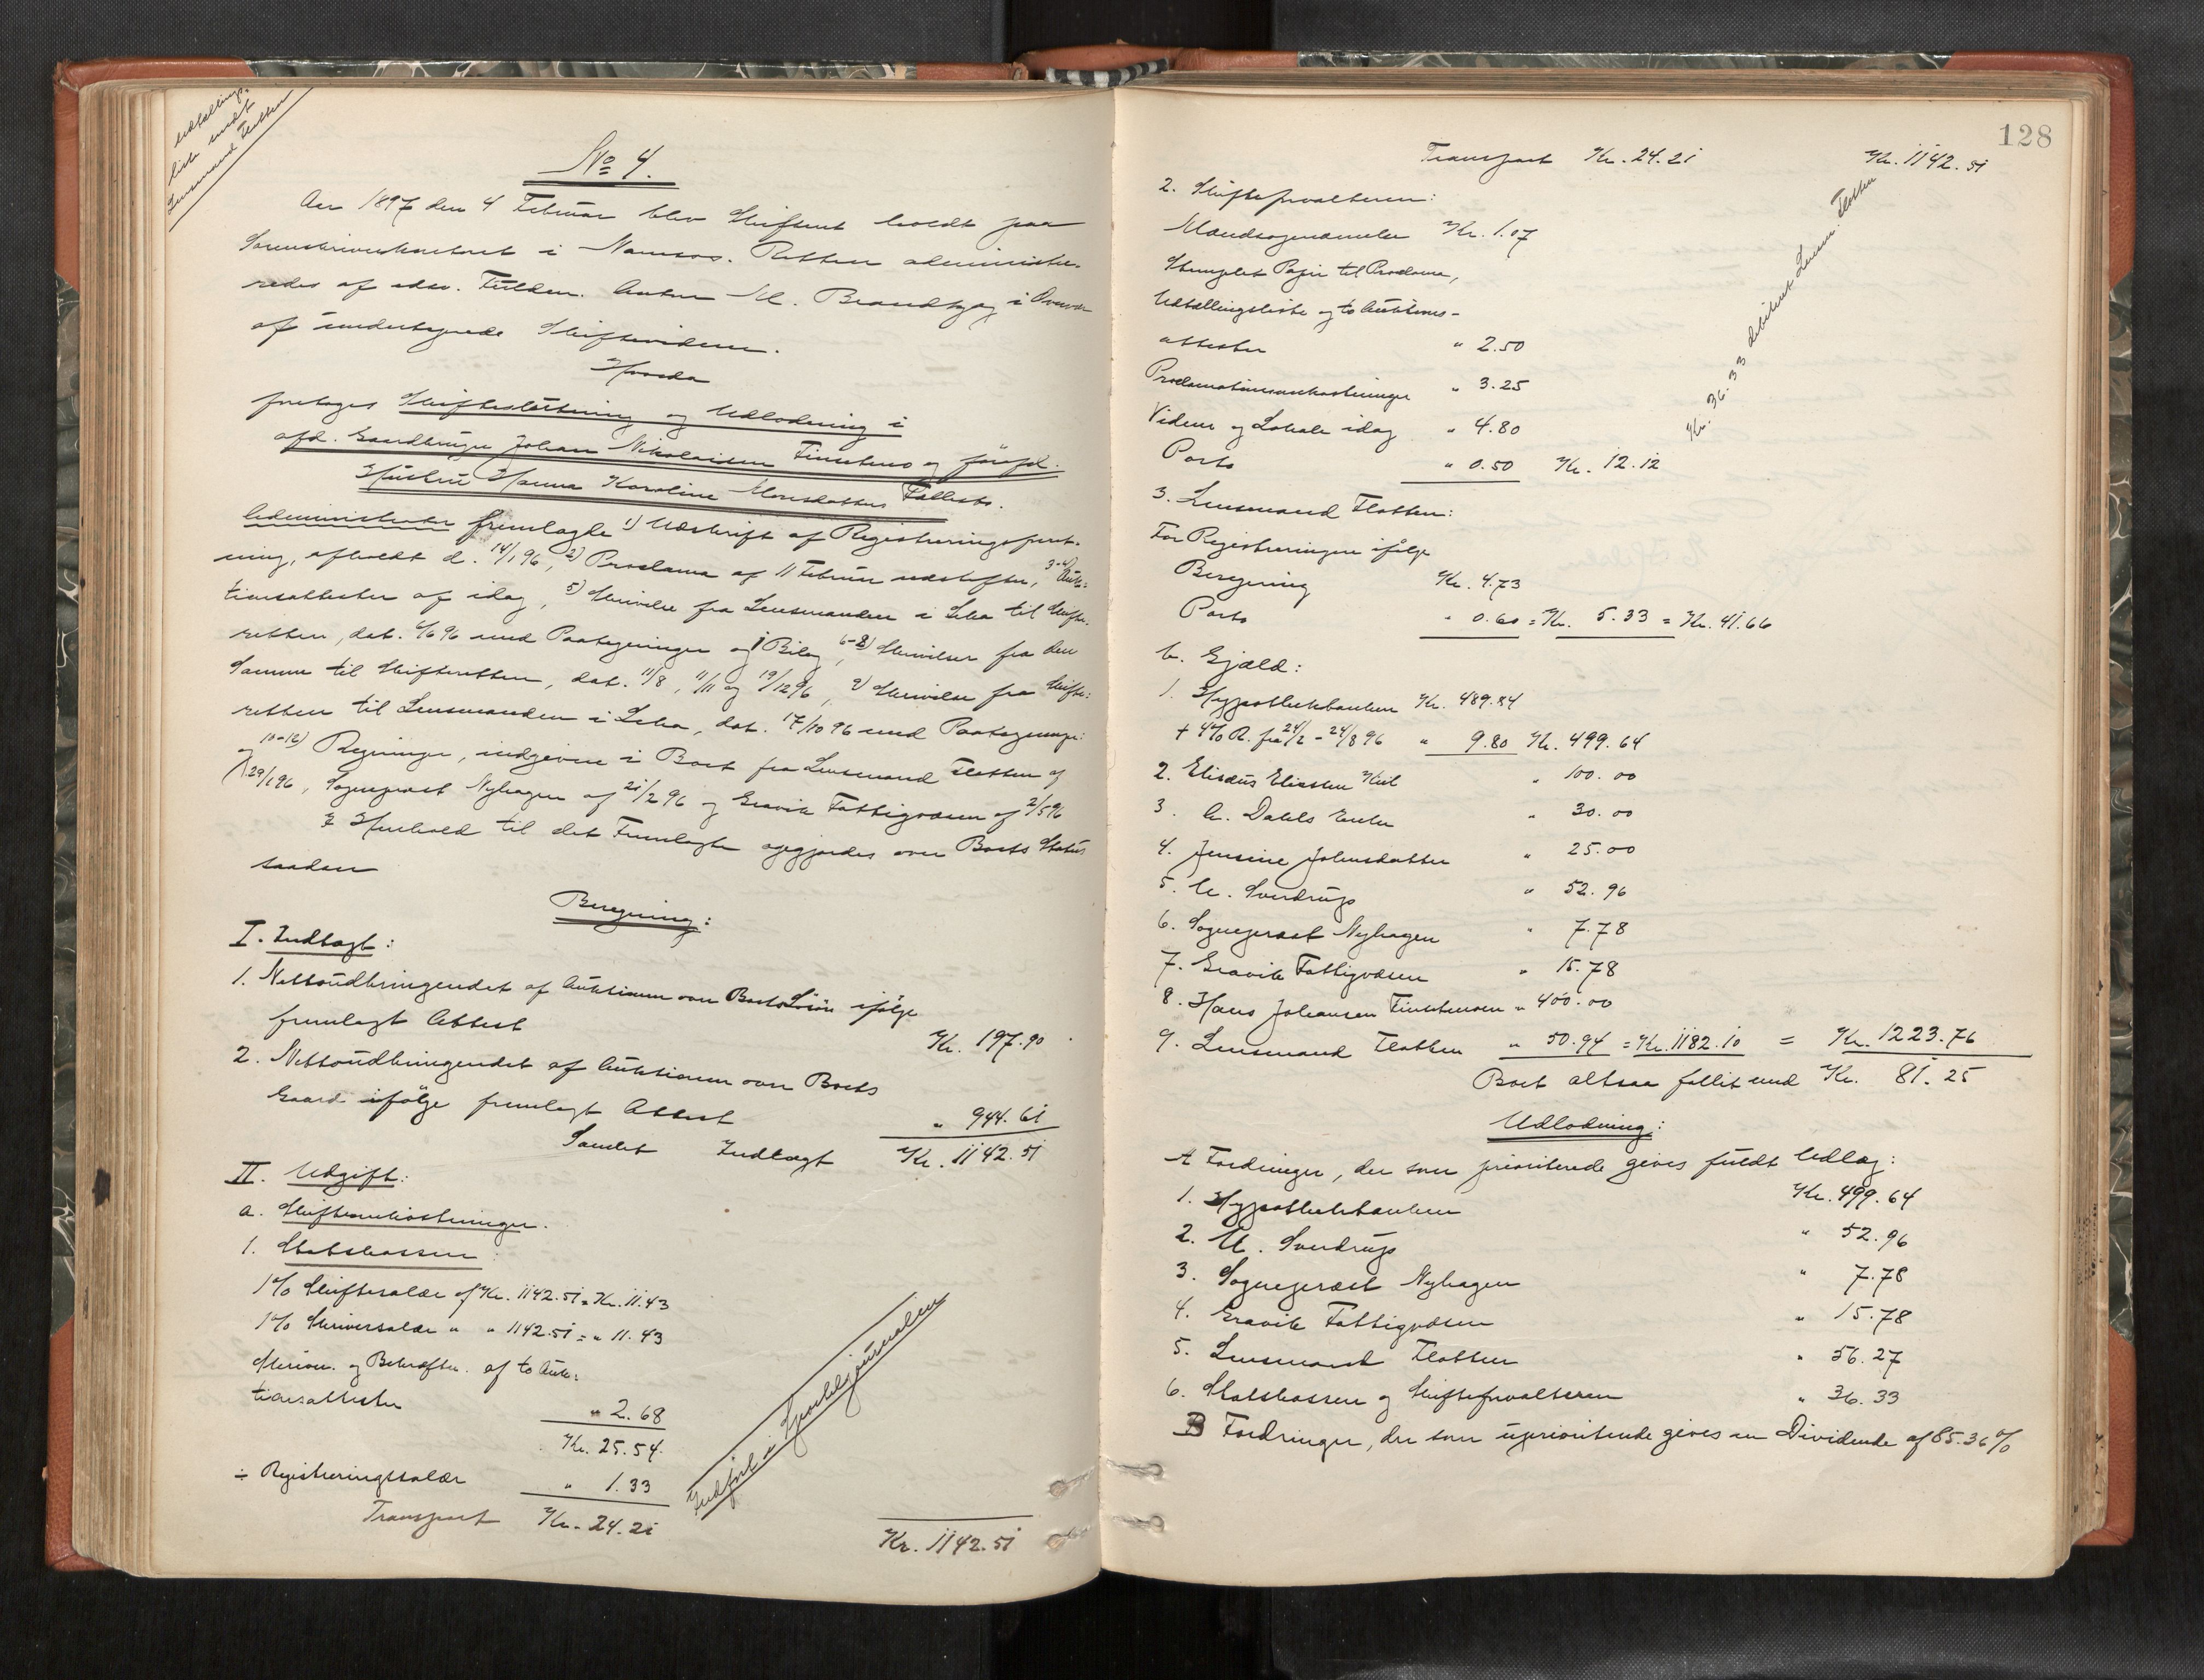 Udtællings-
liste sendt
Lensmand Flotten
No 4.
Aar 1897 den 4 Februar blev Skifteret holdt paa
Sorenskriverkontoret i Namsos. Retten administre-
redes af edsv. Fuldm. Anton M. Brandtzæg i Overvær
af undertegnede Skiftevidner.
Hvorda
foretoges Skifteslutning og Udlodning i
afd. Gaardbruger Johan Nikolaisen Finstens og foraf.
Hustru Hanna Karoline Monsdatters Fallitbo.
Administrator fremlagde 1) Udskrift af Registreringsforret-
ning, afholdt d. 14/1 96, 2) Proclama af 11 Februar udstedt, 3-4) Auk-
tionsattester af idag, 5) Skrivelse fra Lensmanden i Leka til Skifte-
retten, dat. 6/6 96 med Paategninger og 1 Bilag, 6-8) Skrivelser fra den
Samme til Skifteretten, dat. 11/8, 11/11 og 19/12 96, 9) Skrivelse fra Skifte-
retten til Lensmanden i Leka, dat. 17/10 96 med Paategninger
og 10-12) Regninger, indgivne i Boet fra Lensmand Flotten af
29/1 96, Sogneprest Nyhagen af 21/2 96 og Gravik Fattigvæsen af 2/5 96
I Henhold til det Fremlagte opgjordes over Boets Status
saadan
Beregning:
I. Indtægt:
1. Nettoudbringendet af Auktionen over Boets Løsøre ifølge
fremlagt Attest Kr. 197.90
2. Nettoudbringendet af Auktionen over Boets
Gaard ifølge fremlagt Attest " 944.61
Samlet Indtægt Kr. 1142.51
II. Udgift:
a. Skifteomkostninger.
1. Statskassen:
1% Skiftesalær af Kr. 1142.51 = Kr. 11.43
1% Skriversalær " " 1142.51 = " 11.43
Skrivn. og Bekræfte. af to Auk-
tionsattester " 2.68
Kr. 25.54
÷ Registreringssalær " 1.33
Transport Kr. 24.21
Kr. 1142.51
Indført i Sporteljournalen
128
Transport Kr. 24.21 Kr. 1142.51
2. Skifteforvalteren:
Mandsopnævnelse Kr. 1.07
Stemplet Papir til Proclama,
Udtællingsliste og to Auktions-
attester " 2.50
Proclamationsomkostninger " 3.25
Vidner og Lokale idag " 4.80
Porto " 0.50 Kr. 12.12
Kr. 36.33 debiteret Lensm. Flotten
3. Lensmand Flotten:
For Registreringen ifølge
Beregning Kr. 4.73
Porto " 0.60 = Kr. 5.33 = Kr. 41.66
b. Gjæld:
1. Hypothekbanken Kr. 489.84
+ 4% R. fra 24/2 - 24/8 96 " 9.80 Kr. 499.64
2. Elisæus Eliassen Kiil " 100.00
3. A. Dahls Enke " 30.00
4. Jensine Johnsdatter " 25.00
5. U. Sverdrup " 52.96
6. Sogneprest Nyhagen " 7.78
7. Gravik Fattigvæsen " 15.78
8. Hans Johansen Finstensen " 400.00
9. Lensmand Flotten " 50.94 = Kr. 1182.10 = Kr. 1223.76
Boet altsaa fallit med Kr. 81.25
Udlodning:
A Fordringer, der som prioriterede gives fuldt Udlæg:
1. Hypothekbanken Kr. 499.64
2. U. Sverdrup " 52.96
3. Sogneprest Nyhagen " 7.78
4. Gravik Fattigvæsen " 15.78
5. Lensmand Flotten " 56.27
6. Statskassen og Skifteforvalteren " 36.33
B Fordringer, der som uprioriterede gives en Dividende af 85.36%